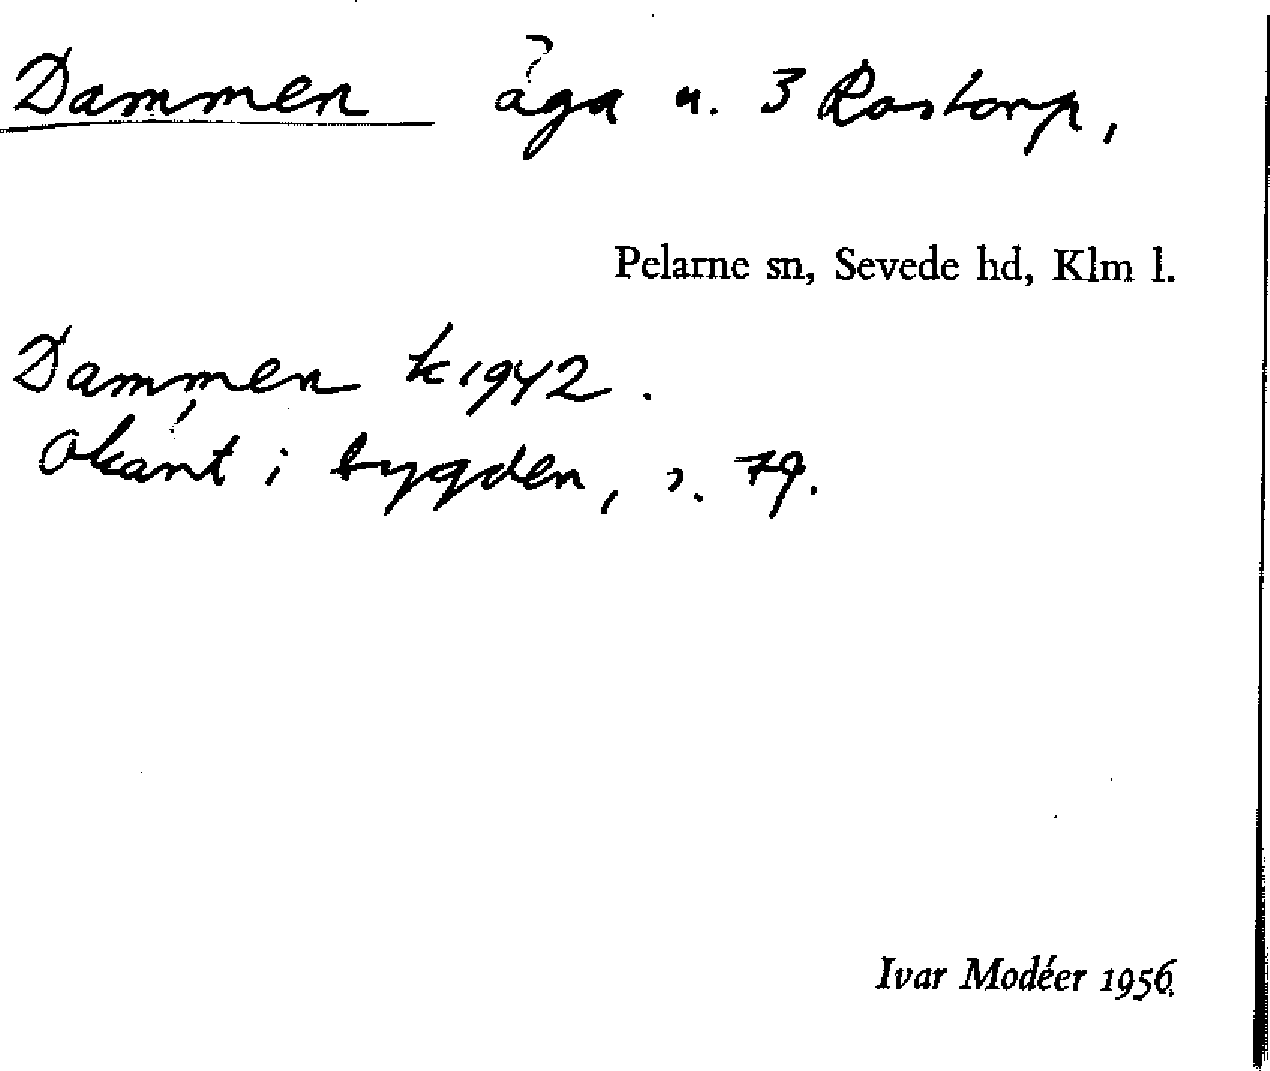 Dammen äga n. 3 Rostorp,
Pelarne sn, Sevede hd, Klm l.
Dammen k 1942.
Okänt i bygden, s. 79.
Ivar Modéer 1956